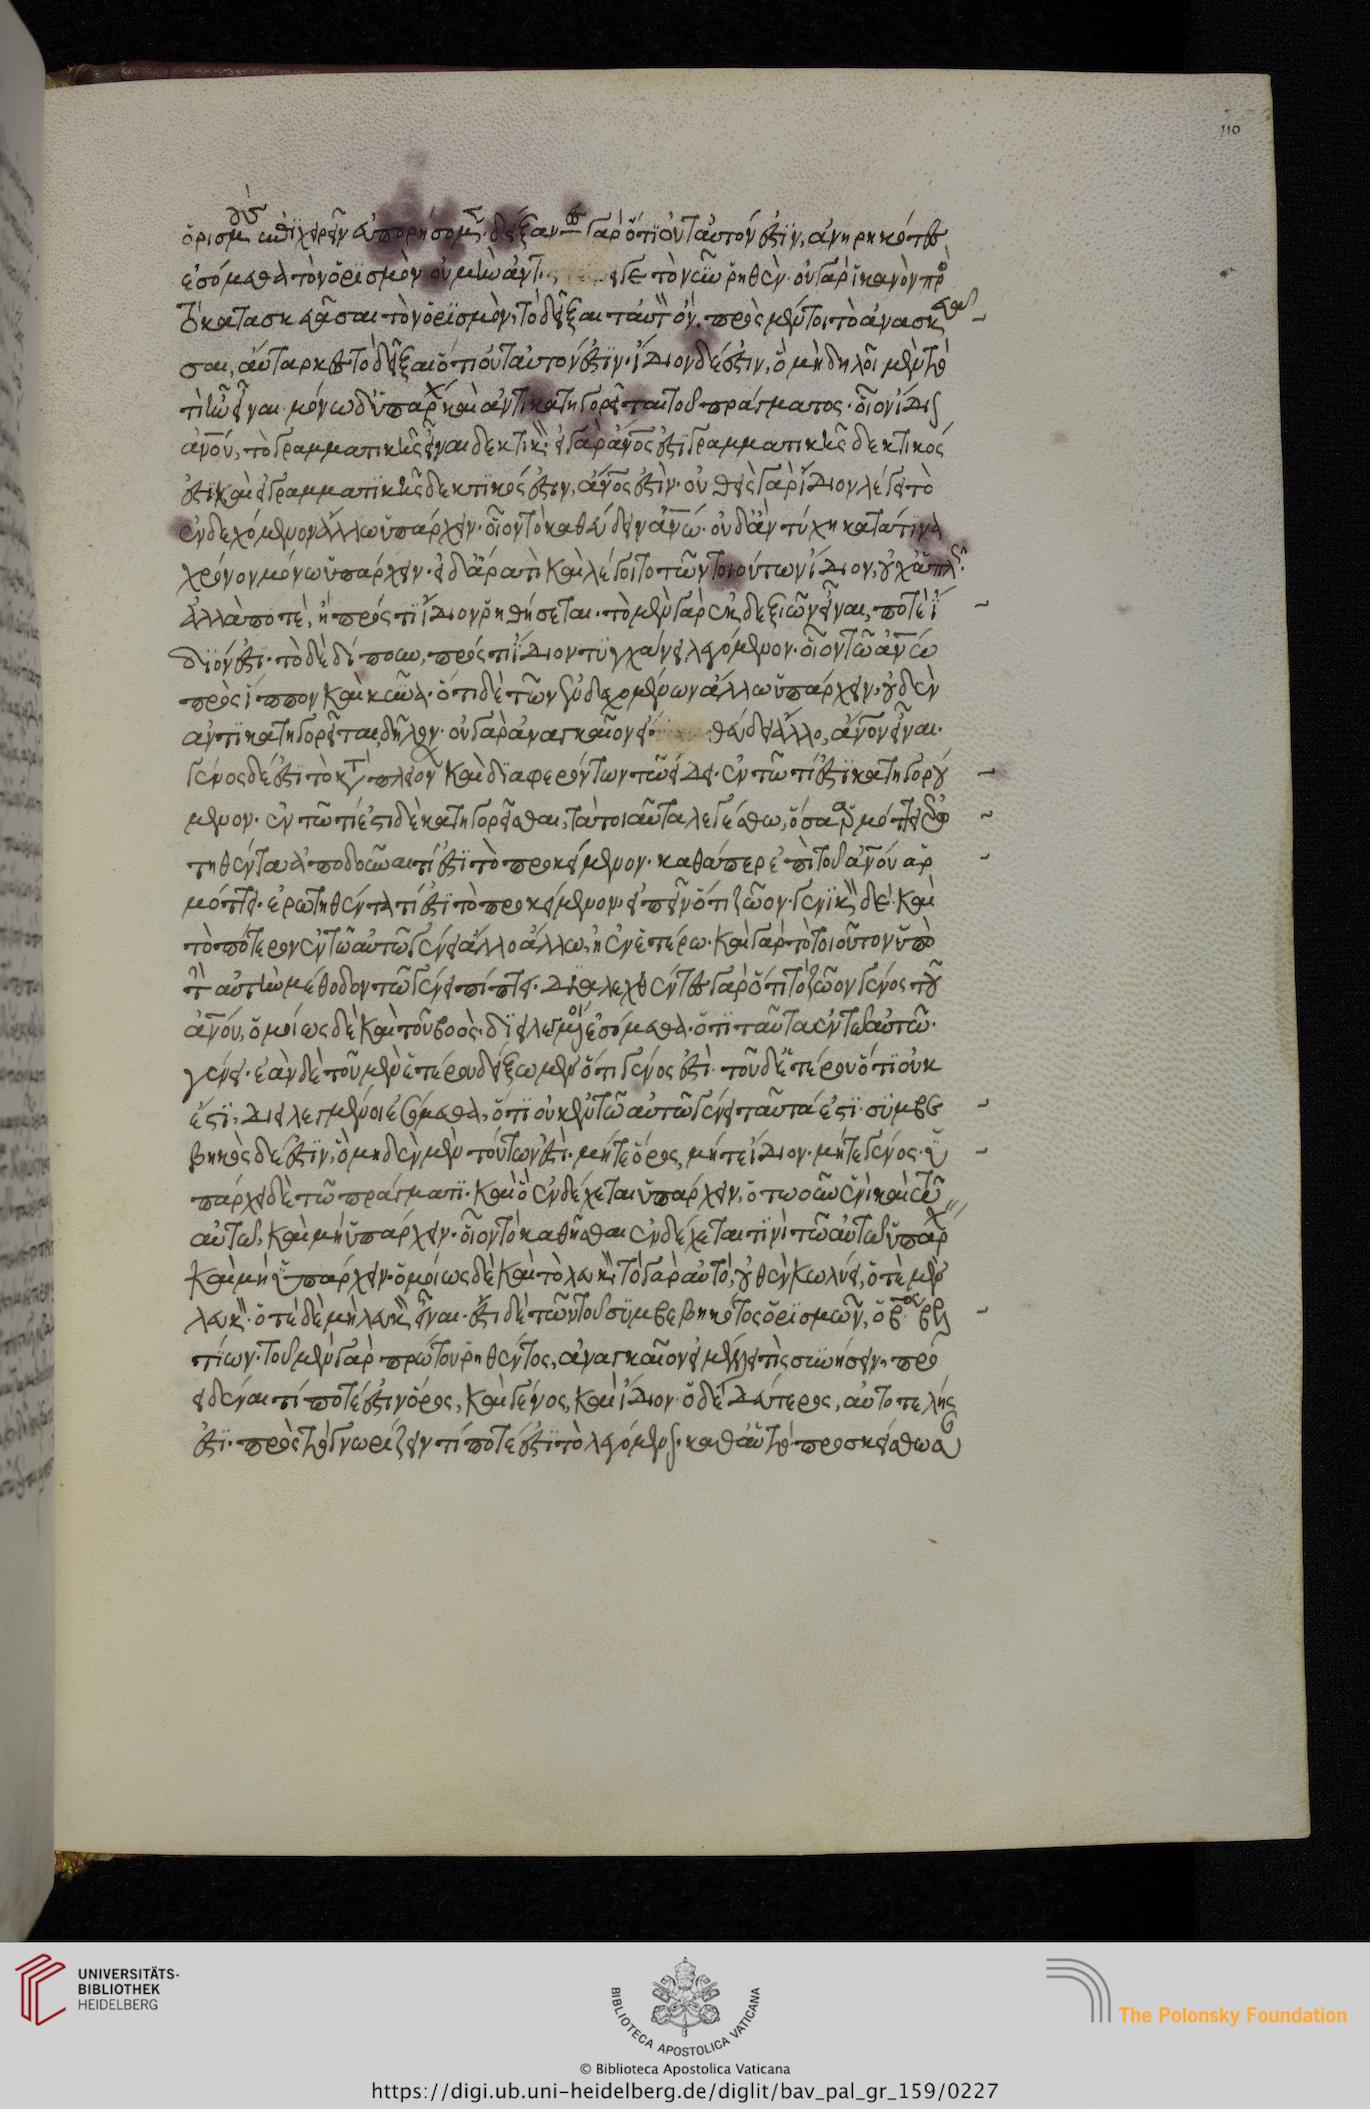 ὁρισμοὺς ἐπιχειρεῖν εὐπορήσομεν· δείξαντες γὰρ ὅτι οὐ ταὐτόν ἐστιν, ἀνῃρηκότες
ἐσόμεθα τὸν ὁρισμὸν· οὐ μὴν ἀντι γε τὸ νῦν ῥηθὲν· οὐ γὰρ ἱκανὸν πρὸς
τὸ κατασκευᾶσαι τὸν ὁρισμὸν, τὸ δεῖξαι ταὐτὸν ὄν. πρὸς μέντοι τὸ ἀνασκευά
σαι, αὔταρκες τὸ δεῖξαι ὅτι οὐ ταὐτόν ἐστιν· ἴδιον δέ ἐστιν, ὃ μὴ δηλοῖ μὲν τὸ
τί ἦν εἶναι· μόνω δ' ὑπάρχει καὶ ἀντικατηγορεῖται τοῦ πράγματος· οἷον ἴδιον
ἀνου, τὸ γραμματικῆς εἶναι δεκτικὸν· εἰ γὰρ ἄνος ἐστὶ γραμματικῆς δεκτικός
ἐστι καὶ εἰ γραμματικῆς δεκτικός ἐστιν, ἄνος ἐστίν· οὐθεὶς γὰρ ἴδιον λέγει τὸ
ἐνδεχόμενον ἄλλω ὑπάρχειν· οἷον τὸ καθεύδειν ἀνω· οὐδ' ἂν τύχη κατά τινα
χρόνον μόνω ὑπάρχειν· εἰ δ' ἄρα τὶ καὶ λέγοιτο τῶν τοιούτων ἴδιον, οὐχ ἁπλῶς·
ἀλλὰ ποτὲ, ἢ πρός τι ἴδιον ῥηθήσεται· τὸ μὲν γὰρ ἐκ δεξιῶν εἶναι, ποτὲ ἴ
διόν ἐστι· τὸ δὲ δίπουν, πρός τι ἴδιον τυγχάνει λεγόμενον· οἷον τῶ ἀνω
πρὸς ἵππον καὶ κύνα· ὅτι δὲ τῶν ἐνδεχομένων ἄλλω ὑπάρχειν, οὐδὲν
ἀντικατηγορεῖται, δῆλον· οὐ γὰρ ἀναγκαῖον εἴ καθεύδει ἄλλο, ἄνον εἶναι·
γένος δέ ἐστι τὸ κατὰ πλειόνων καὶ διαφερόντων τῶ εἴδει· ἐν τῶ τί ἐστι κατηγορού
μενον· ἐν τῶ τί ἐστι δὲ κατηγορεῖσθαι, τὰ τοιαῦτα λεγέσθω, ὅσα ἁρμόττει ἐρω
τηθέντα ἀποδοῦναι τί ἐστι τὸ προκείμενον· καθάπερ ἐπὶ τοῦ ἀνου ἁρ
μόττει· ἐρωτηθέντα τί ἐστι τὸ προκείμενον, εἰπεῖν ὅτι ζῶον· γενικὸν δὲ καὶ
τὸ πότερον ἐν τῶ αὐτῶ γένει ἄλλο ἄλλω, ἢ ἐν ἑτέρω· καὶ γὰρ τὸ τοιοῦτον ὑπὸ
τὴν αὐτὴν μέθοδον τῶ γένει πίπτει· διαλεχθέντες γὰρ ὅτι τὸ ζῶον γένος τοῦ
ἀνου, ὁμοίως δὲ καὶ τοῦ βοὸς· διειλεγμένοι ἐσόμεθα· ὅτι ταῦτα ἐν τῶ αὐτῶ·
γένει· ἐὰν δὲ τοῦ μὲν ἑτέρου δείξωμεν ὅτι γένος ἐστὶ· τοῦ δὲ ἑτέρου ὅτι οὐκ
ἔστι, διειλεγμένοι ἐσόμεθα, ὅτι οὐκ ἐν τῶ αὐτῶ γένει ταῦτά ἐστι· συμβε
βηκὸς δέ ἐστιν, ὃ μηδὲν μὲν τούτων ἐστὶ· μήτε ὅρος, μήτε ἴδιον· μήτε γένος· ὑ
πάρχει δὲ τῶ πράγματι· καὶ ὃ ἐνδέχεται ὑπάρχειν, ὁτωοῦν ἑνὶ καὶ τῶ
αὐτῶ, καὶ μὴ ὑπάρχειν· οἷον τὸ καθῆσθαι ἐνδέχεται τινὶ τῶ αὐτῶ ὑπάρχειν
καὶ μὴ ὑπάρχειν· ὁμοίως δὲ καὶ τὸ λευκὸν· τὸ γὰρ αὐτὸ, οὐθὲν κωλύει, ὁτὲ μὲν
λευκὸν· ὁτὲ δὲ μὴ λευκὸν εἶναι· ἔστι δὲ τῶν τοῦ συμβεβηκότος ὁρισμῶν, ὁ βος βελ
τίων· τοῦ μὲν γὰρ πρώτου ῥηθέντος, ἀναγκαῖον εἰ μέλλει τὶς συνήσειν, προ
ειδέναι τί ποτέ ἐστιν ὅρος, καὶ γένος, καὶ ἴδιον· ὁ δὲ δεύτερος, αὐτοτελής
ἐστι· πρὸς τὸ γνωρίζειν τί ποτέ ἐστι τὸ λεγόμενον καθ' αὑτό· προσκείσθωσ
110
UNIVERSITÄTS-
BIBLIOTHEK
HEIDELBERG
BIBLIOTECA APOSTOLICA VATICANA
The Polonsky Foundation
© Biblioteca Apostolica Vaticana
https://digi.ub.uni-heidelberg.de/diglit/bav_pal_gr_159/0227